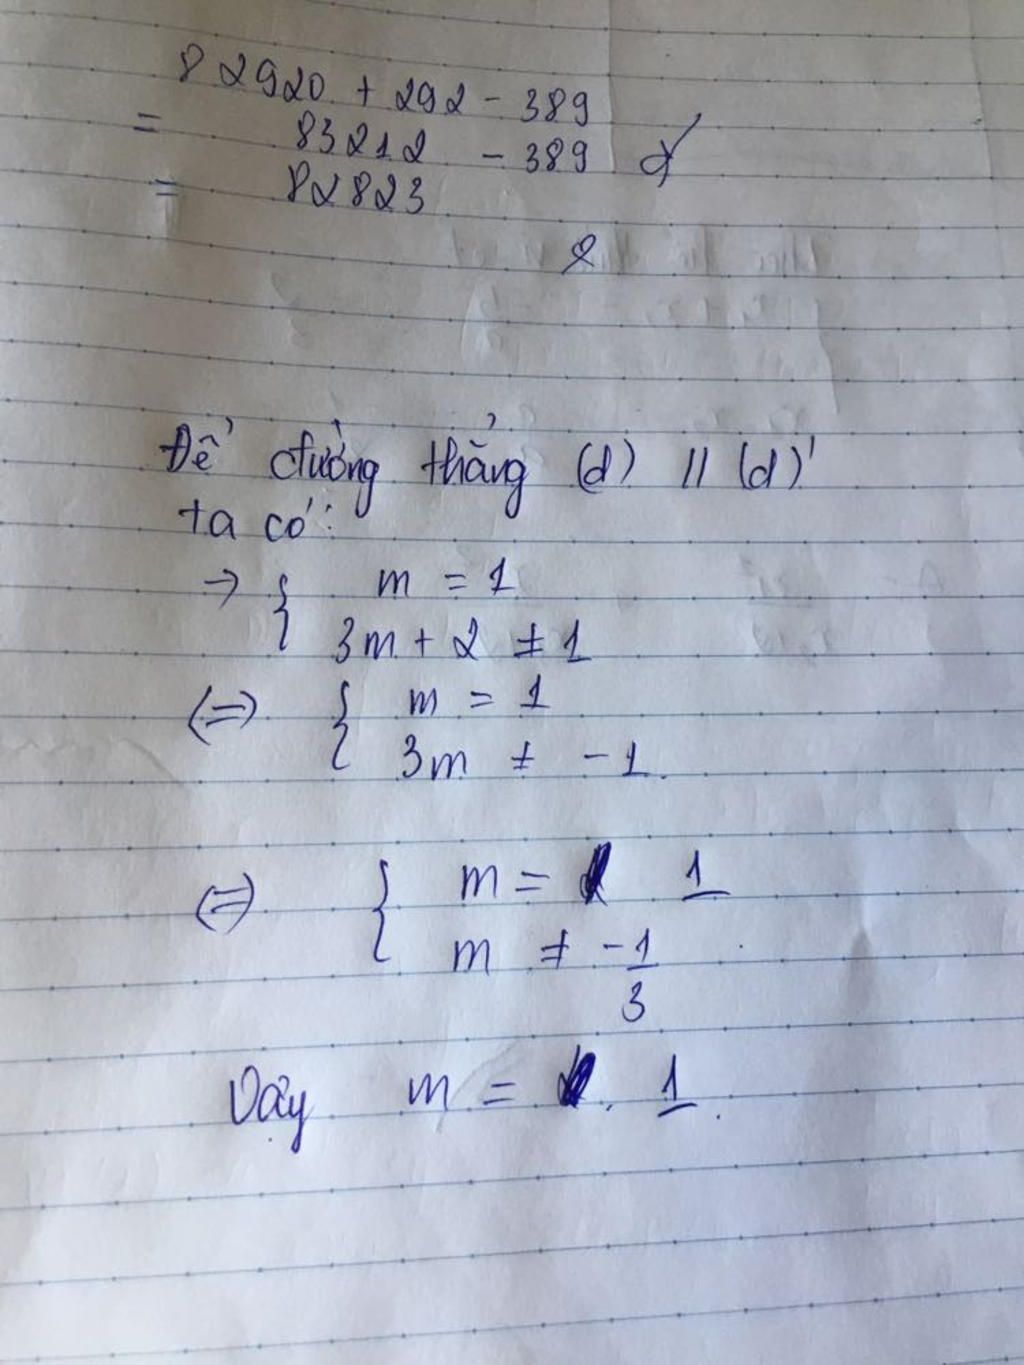 82920 + 292 - 389
= 83212 - 389
= 82823
Để đường thẳng (d) // (d)'
ta có:
→ { m = 1
3m + 2 ≠ 1
(=) { m = 1
3m ≠ -1.
(=) { m = 1
m ≠ -1/3
Vậy m = 1.